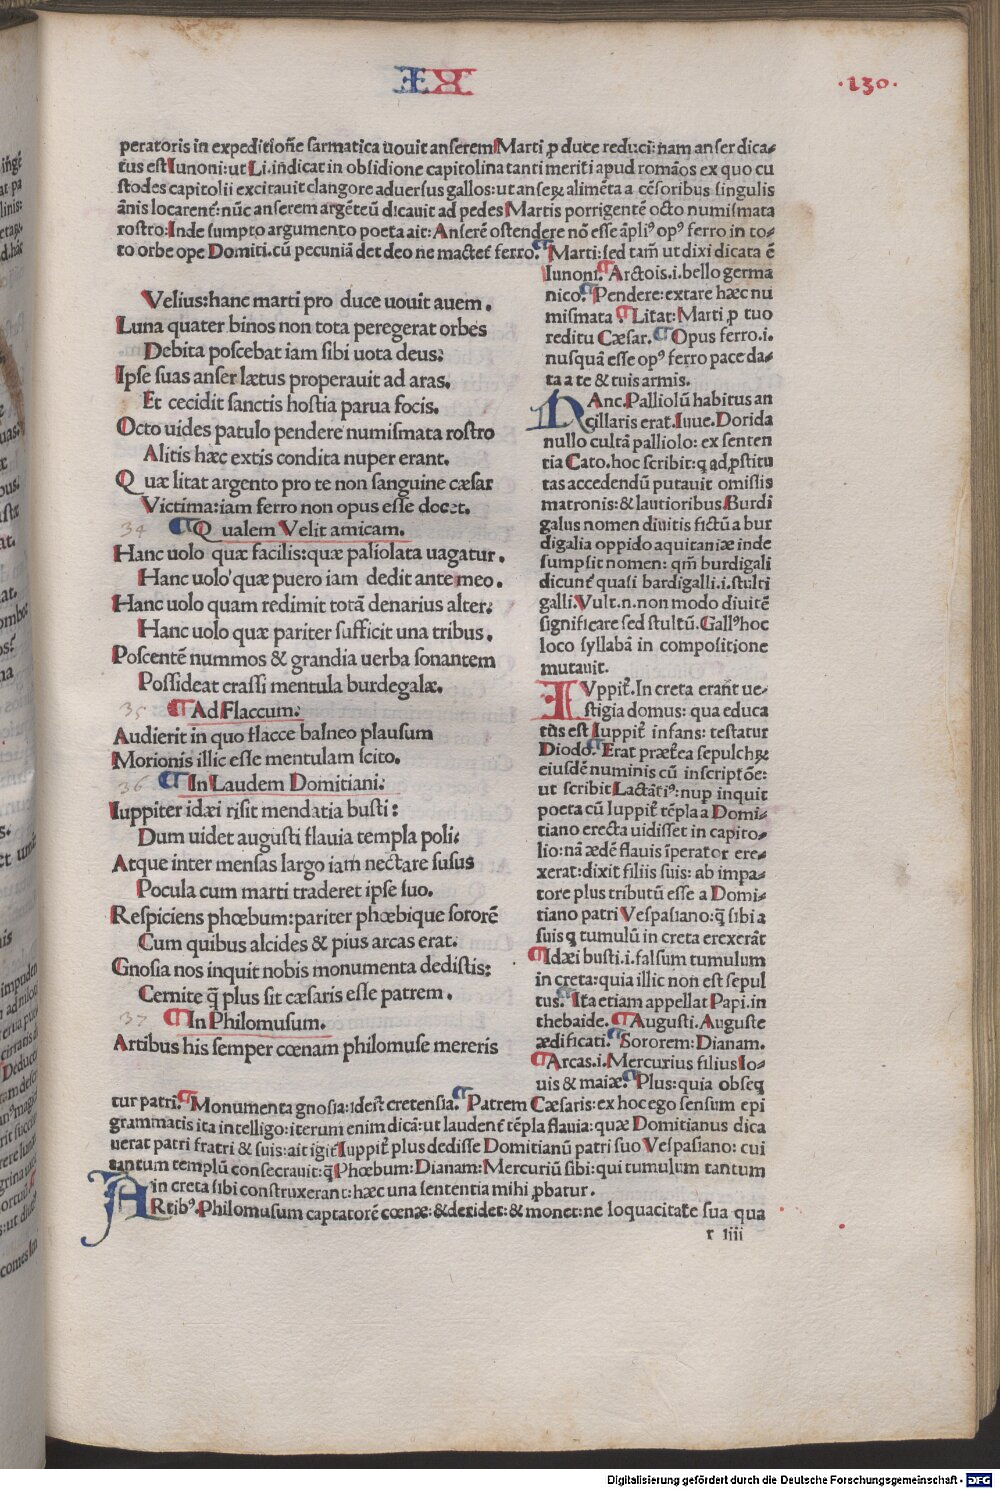 EX
·130·
peratoris in expeditiõe sarmatica uouit anserem Marti ꝓ duce reduci: nam anser dica⸗
tus est Iunoni: ut Li. indicat in obsidione capitolina tanti meriti apud romãos ex quo cu
stodes capitolii excitauit clangore aduersus gallos: ut anseꝝ alimẽta a cẽsoribus singulis
ãnis locarent̃: nũc anserem argẽteũ dicauit ad pedes Martis porrigentẽ octo numismata
rostro: Inde sumpto argumento poeta ait: Anserẽ ostendere nõ esse ãpliꝰ opꝰ ferro in to⸗
to orbe ope Domiti. cũ pecuniã det deo ne mactet̃ ferro. ¶ Marti: sed tam̃ ut dixi dicata ẽ
Iunoni. ¶ Arctois .i. bello germa
nico. ¶ Pendere: extare hæc nu
mismata. ¶ Litat: Marti ꝓ tuo
reditu Cæsar. ¶ Opus ferro .i.
nusquã esse opꝰ ferro pace da⸗
ta a te & tuis armis.
Velius: hanc marti pro duce uouit auem.
Luna quater binos non tota peregerat orbes
Debita poscebat iam sibi uota deus:
Ipse suas anser lætus properauit ad aras.
Et cecidit sanctis hostia parua focis.
Octo uides patulo pendere numismata rostro
Alitis hæc extis condita nuper erant.
Quæ litat argento pro te non sanguine cæsar
Victima: iam ferro non opus esse docet.
34 ¶ Qualem Velit amicam.
Hanc uolo quæ facilis: quæ paliolata uagatur.
Hanc uolo quæ puero iam dedit ante meo.
Hanc uolo quam redimit totã denarius alter:
Hanc uolo quæ pariter sufficit una tribus.
Poscentẽ nummos & grandia uerba sonantem
Possideat crassi mentula burdegalæ.
35 ¶ Ad Flaccum:
Audierit in quo flacce balneo plausum
Morionis illic esse mentulam scito.
36 ¶ In Laudem Domitiani:
Iuppiter idæi risit mendatia busti:
Dum uidet augusti flauia templa poli:
Atque inter mensas largo iam nectare fusus
Pocula cum marti traderet ipse suo.
Respiciens phœbum: pariter phœbique sororẽ
Cum quibus alcides & pius arcas erat:
Gnosia nos inquit nobis monumenta dedistis:
Cernite q̃ plus sit cæsaris esse patrem.
37 ¶ In Philomusum.
Artibus his semper cœnam philomuse mereris
HAnc. Palliolũ habitus an
cillaris erat. Iuue. Dorida
nullo cultã palliolo: ex senten
tia Cato. hoc scribit: q ad ꝓstitu
tas accedendũ putauit omissis
matronis: & lautioribus Burdi
galus nomen diuitis fictũ a bur
digalia oppido aquitaniæ inde
sumpsit nomen: qm̃ burdigali
dicunt̃ quasi bardigalli .i. stulti
galli. Vult .n. non modo diuitẽ
significare sed stultũ. Gallꝰ hoc
loco syllabã in compositione
mutauit.
IVppit̃. In creta erãt ue⸗
stigia domus: qua educa
tus est Iuppit̃ infans: testatur
Diodo. ¶ Erat præt̃ea sepulchꝝ
eiusdẽ numinis cũ inscriptõe:
ut scribit Lactãtiꝰ: nuꝑ inquit
poeta cũ Iuppit̃ tẽpla a Domi⸗
tiano erecta uidisset in capito⸗
lio: nã ædẽ flauis ĩperator ere⸗
xerat: dixit filiis suis: ab impa⸗
tore plus tributũ esse a Domi⸗
tiano patri Vespasiano: q̃ sibi a
suis q tumulũ in creta erexerãt
¶ Idæi busti .i. falsum tumulum
in creta: quia illic non est sepul
tus. ¶ Ita etiam appellat Papi. in
thebaide. ¶ Augusti. Auguste
ædificati. ¶ Sororem: Dianam.
¶ Arcas .i. Mercurius filius Io⸗
uis & maiæ. ¶ Plus: quia obseq
tur patri. ¶ Monumenta gnosia: idest cretensia. ¶ Patrem Cæsaris: ex hoc ego sensum epi
grammatis ita intelligo: iterum enim dicã: ut laudent̃ tẽpla flauia: quæ Domitianus dica
uerat patri fratri & suis: ait igit̃ Iuppit̃ plus dedisse Domitianũ patri suo Vespasiano: cui
tantum templũ consecrauit: q̃ Phœbum: Dianam: Mercuriũ sibi: qui tumulum tantum
in creta sibi construxerant: hæc una sententia mihi ꝓbatur.
ARtibꝰ. Philomusum captatorẽ cœnæ: & deridet: & monet: ne loquacitate sua qua
r iiii
Digitalisierung gefördert durch die Deutsche Forschungsgemeinschaft - DFG